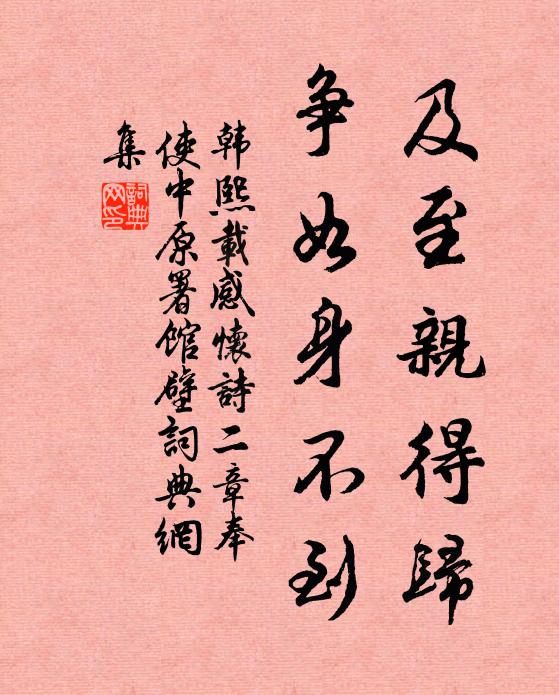 及至親得歸
爭如身不到
韩熙載感懷詩二章奉
使中原署館壁詞典網
集
詞典
网印